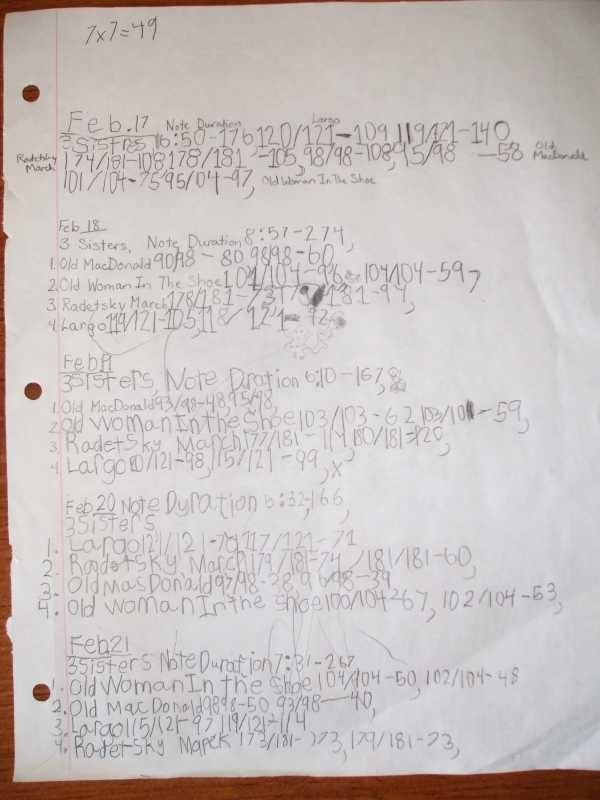 7x7=49
Feb.17 Note Duration Largo
3 Sistres 6:50-176 120/121-109 119/121-140
Radetsky March 174/181-108 178/181-105, 98/98-108, 95/98-58 Old MacDonald
101/104-75 95/04-97, Old Woman In The Shoe
Feb 18
3 Sisters, Note Duration 8:57-274,
1. Old MacDonald 90/98-80 98/98-60
2. Old Woman In The Shoe 101/104-96 104/104-59,
3. Radetsky March 178/181-73 181-94,
4. Largo 119/121-105, 118/121-92
Feb 19
3 Sisters, Note Duration 6:10-167,
1. Old MacDonald 93/98-48, 95/98,
2. Old Woman In the Shoe 103/103-62 103/101-59,
3. Radetsky March 177/181-111 180/181=120,
4. Largo 121-98, 115/121-99, x
Feb 20 Note Dyration 5:32,166,
3 Sisters
1. Largo 121/121-79 117/121-71
2. Radetsky March 179/181-74, 181/181-60,
3. Old MasDonald 97/98-38 96/98-39
4. Old Woman In the Shoe 100/104-67, 102/104-53,
Feb.21
3 Sisters Note Duration 7:31-267
1. Old Woman In the Shoe 104/104-50, 102/104-48
2. Old MacDonald 98 98-50, 93/98-40,
3. Largo 115/121-97 119/121-114
4. Radetsky Marck 173/181-273, 179/181-73,